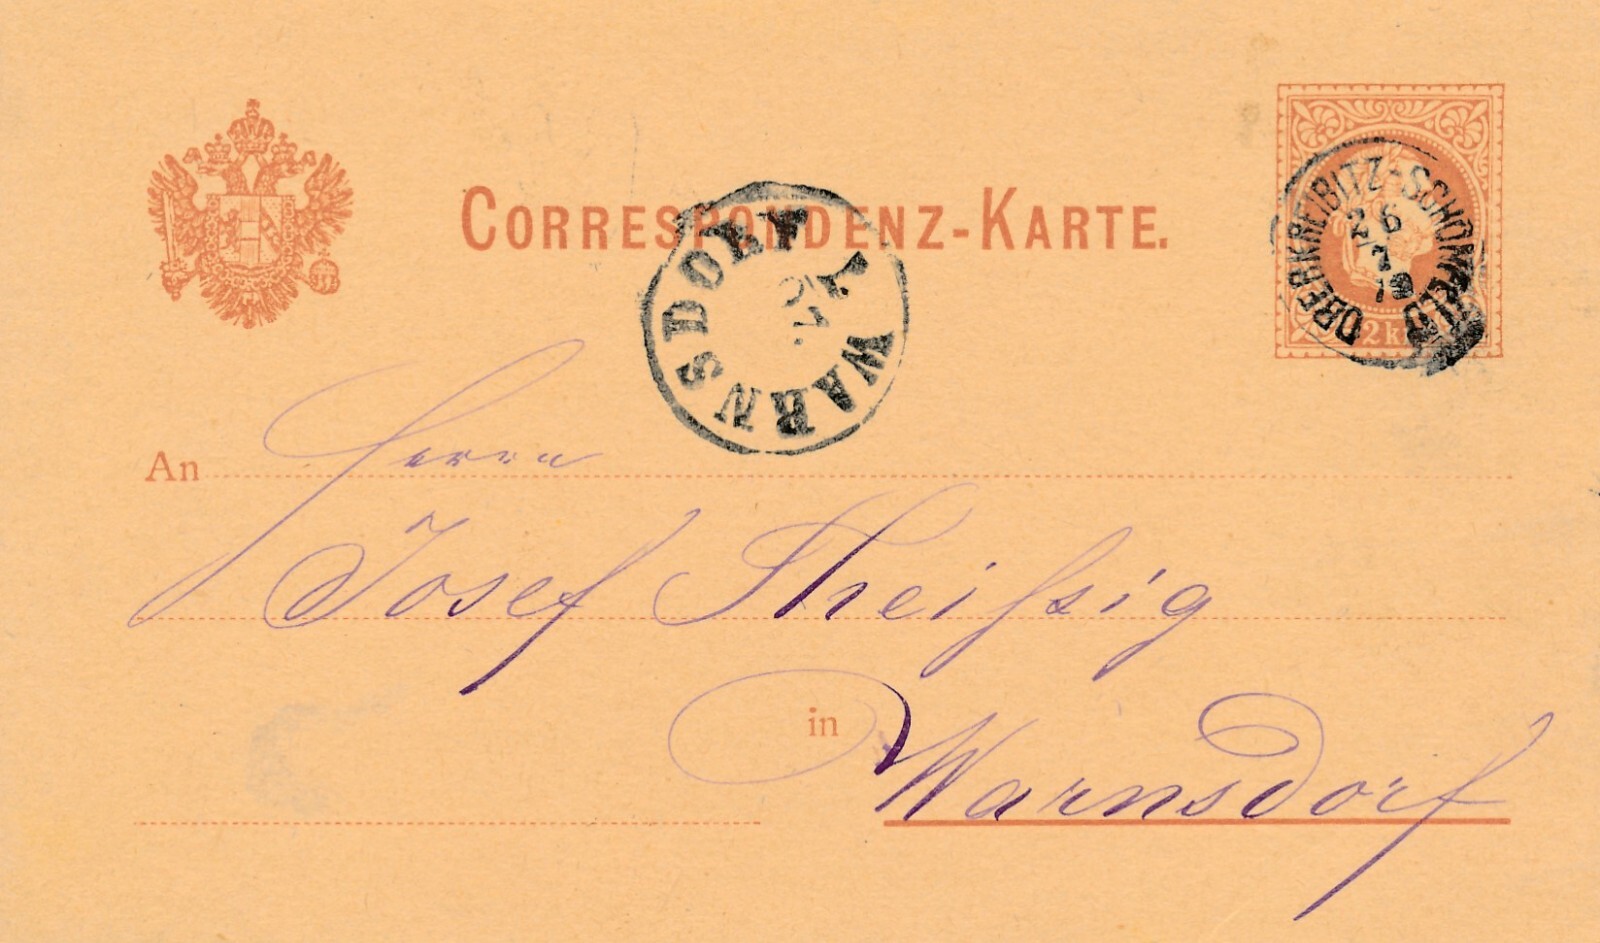 CORRESPONDENZ-KARTE.
OBERKREIBITZ-SCHÖNFELD
26
7
2 kr.
WARNSDORF
An Herrn
Josef Theißig
in Warnsdorf